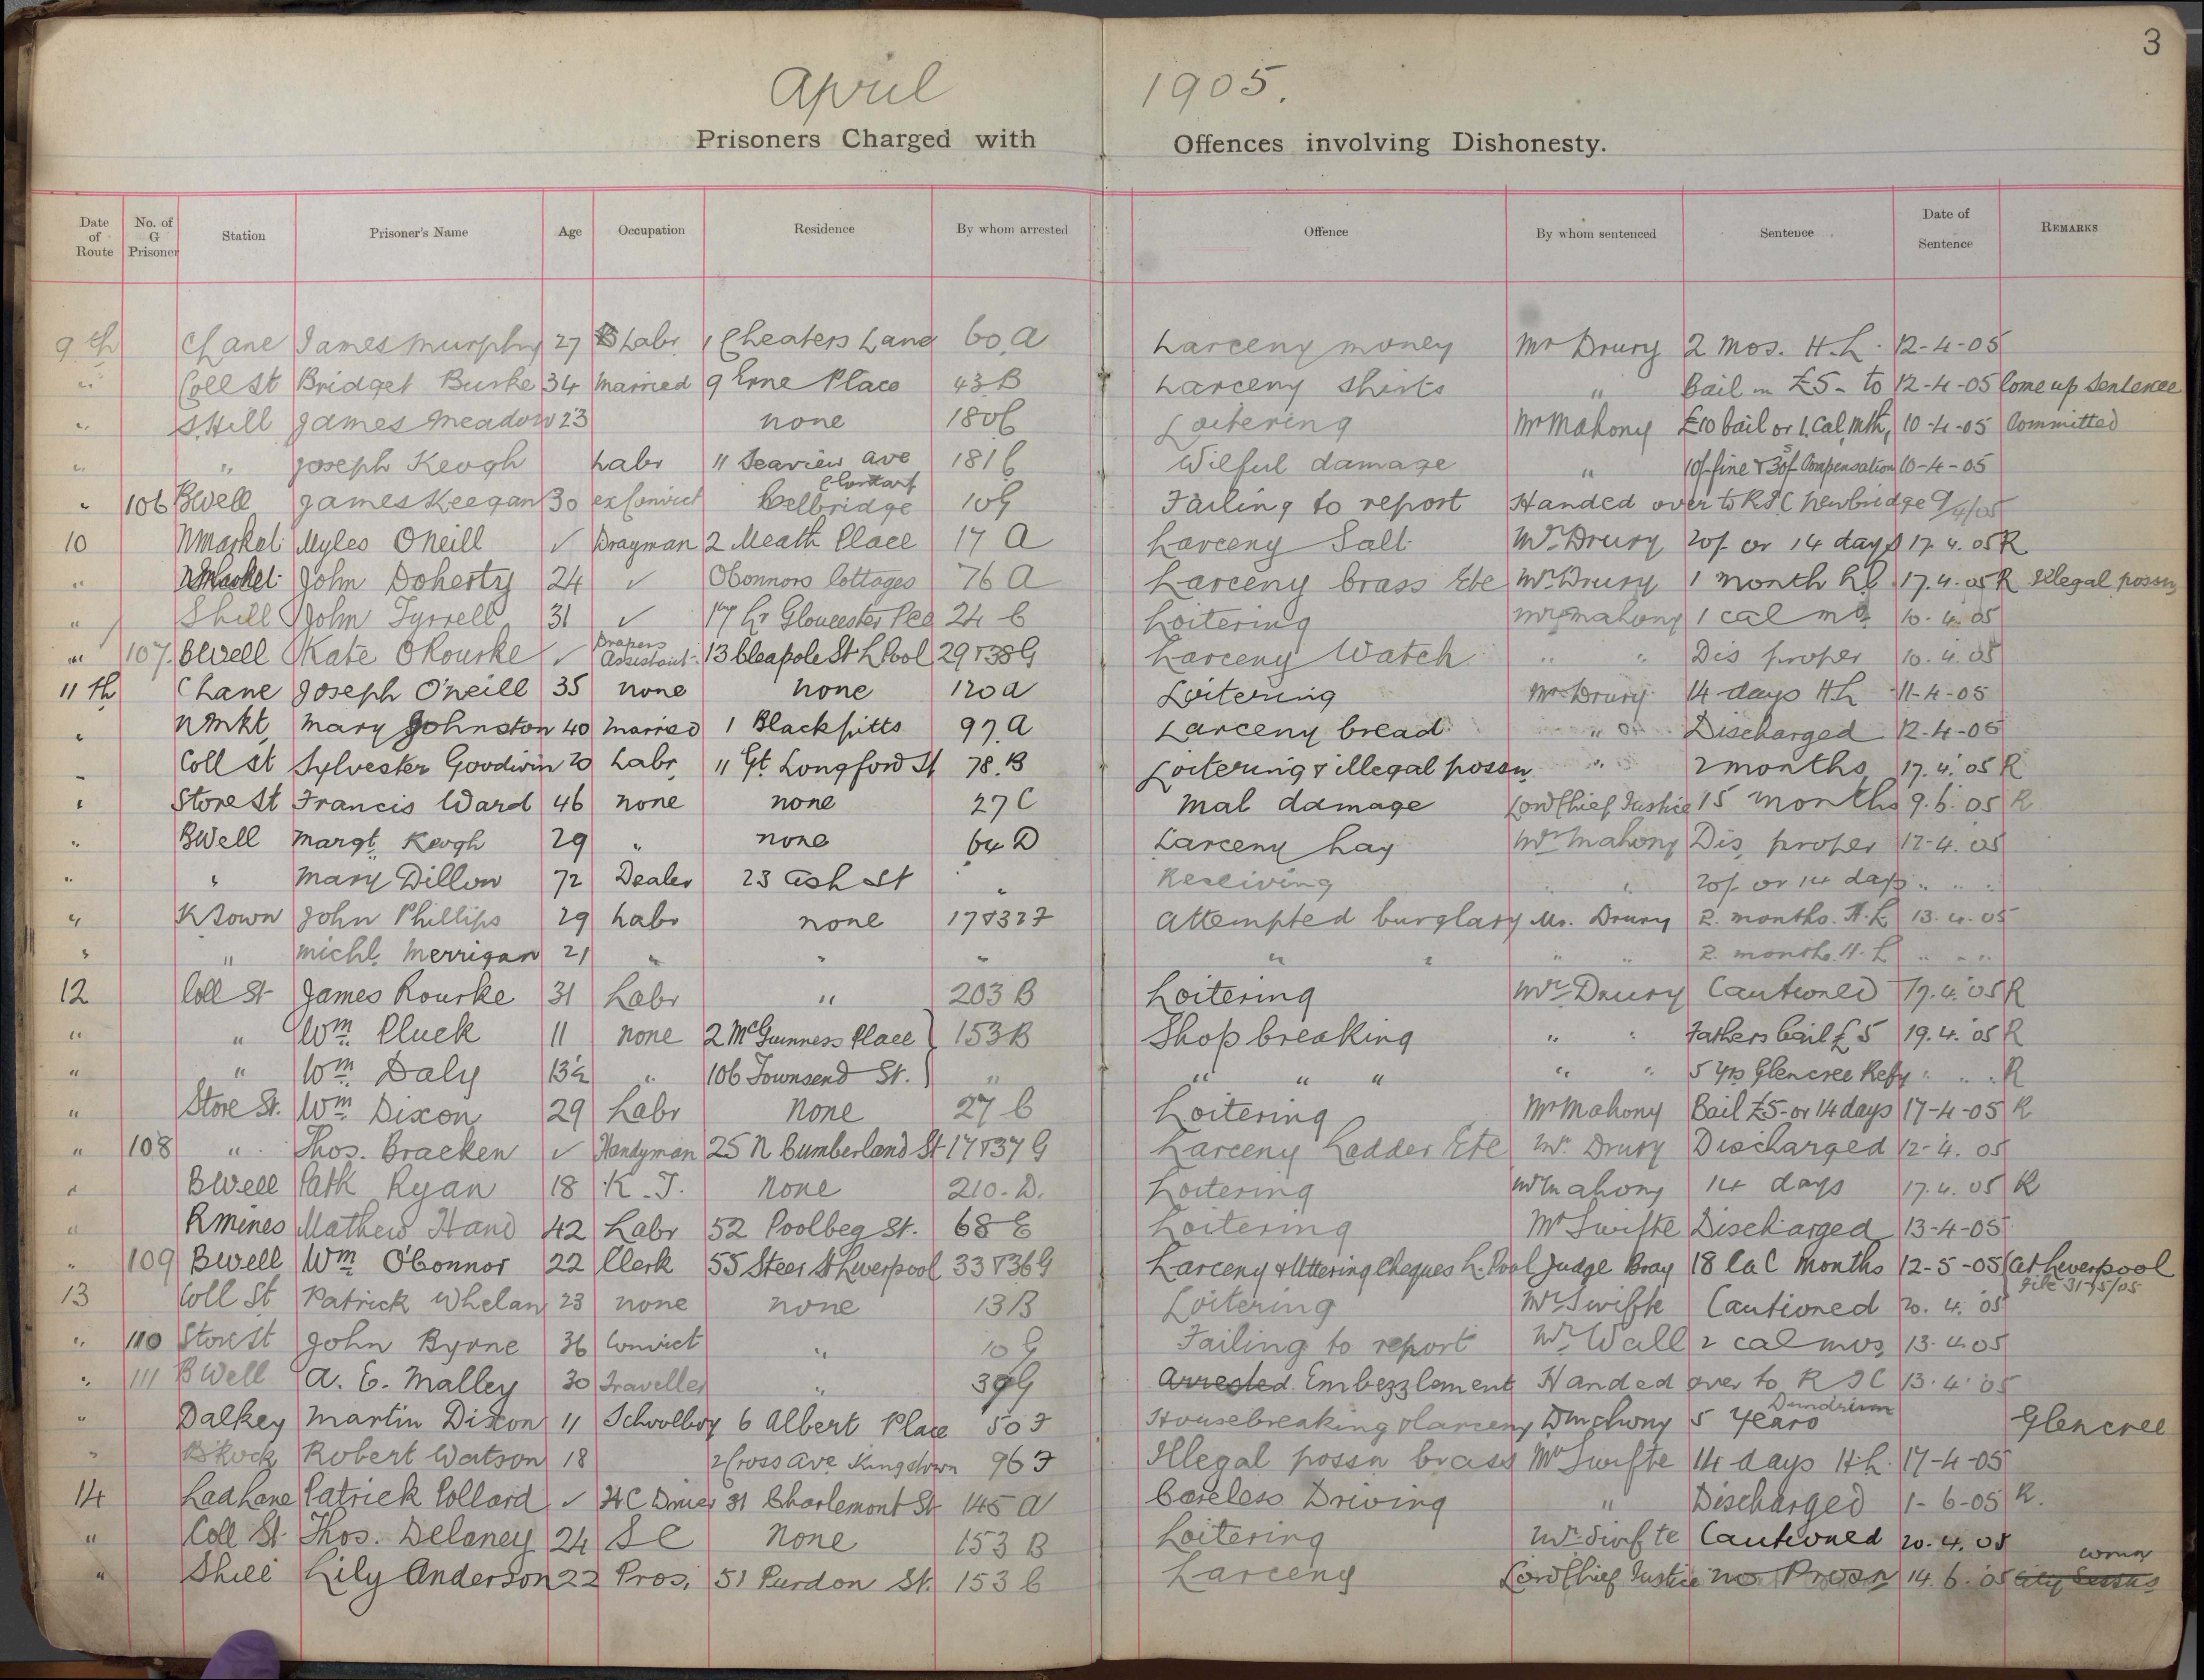 3
April 1905.
Prisoners Charged with Offences involving Dishonesty.
Date of Route No. of G Prisoner Station Prisoner's Name Age Occupation Residence By whom arrested Offence By whom sentenced Sentence Date of Sentence REMARKS
9th C Lane James Murphy 27 Labr 1 Cheaters Lane 60 A Larceny money Mr Drury 2 Mos. H.L. 12-4-05
" Coll St Bridget Burke 34 Married 9 Erne Place 43 B Larceny Shirts " Bail in £5 - to 12-4-05 Come up Sentence
" S.Hill James Meadow 23 none 180 C Loitering Mr Mahony £10 bail or 1 Cal. Mth, 10-4-05 Committed
" " Joseph Keogh Labr 11 Seaview Ave Clontarf 181 C Wilful damage " 10/- fine & 30/- Compensation 10-4-05
" 106 BWell James Keegan 30 ex Convict Celbridge 10 G Failing to report Handed over to RIC Newbridge 9/4/05
10 N Market Myles O'Neill ✓ Drayman 2 Meath Place 17 A Larceny Salt Mr Drury 20/- or 14 days 17.4.05 R
" N Market John Doherty 24 ✓ O'Connors Cottages 76 A Larceny brass Etc Mr Drury 1 month h.l. 17.4.05 R Illegal possn
" S hill John Tyrrell 31 ✓ 17 Lr Gloucester Plce 24 C Loitering Mr Mahony 1 cal mo. 10.4.05
" 107 BWell Kate O'Rourke ✓ Drapers Assistant 13 Cleapole St L Pool 29 & 38 G Larceny Watch " " Dis proper 10.4.05
11th C Lane Joseph O'neill 35 none none 120 A Loitering Mr Drury 14 days H L 11-4-05
" N Mkt Mary Johnston 40 Married 1 Blackpitts 97 A Larceny bread " Discharged 12-4-05
" Coll st Sylvester Goodwin 20 Labr, 11 Gt Longford St 78. B Loitering & illegal possn " 2 months 17.4.05 R
" Store St Francis Ward 46 none none 27 C Mal damage Lord Chief Justice 15 months 9.6.05 R
" BWell Margt Keogh 29 " none 64 D Larceny hay Mr Mahony Dis, proper 12-4.05
" " Mary Dillon 72 Dealer 23 Ash St " Receiving " " 20/- or 14 days " " "
" K Town John Phillips 29 Labr none 17 & 32 F Attempted burglary Mr. Drury 2. months. H.L 13.4.05
" " Michl. Merrigan 21 " " " " " " " 2. months. H.L " " "
12 Coll St James Rourke 31 Labr " 203 B Loitering Mr Drury Cautioned 19.4.05 R
" " Wm Pluck 11 none 2 McGuinness Place 153 B Shop breaking " " Fathers bail £5 19.4.05 R
" " Wm Daly 13½ " 106 Townsend St. " " " " " " 5 yrs Glencree Refy " " " R
" Store St. Wm Dixon 29 Labr None 27 C Loitering Mr Mahony Bail £5 - or 14 days 17-4-05 R
" 108 " Thos. Bracken ✓ Handyman 25 N Cumberland St 17 & 37 G Larceny Ladder Etc Mr. Drury Discharged 12-4.05
" BWell Patk Ryan 18 K.T. none 210. D. Loitering Mr Mahony 14 days 17.4.05 R
" R mines Mathew Hand 42 Labr 52 Poolbeg St. 68 E Loitering Mr Swifte Discharged 13-4-05
" 109 Bwell Wm O'Connor 22 Clerk 55 Steer St Liverpool 33 & 36 G Larceny & Uttering Cheques L. Pool Judge Bray 18 Cal Months 12-5-05 (at Liverpool file 31/5/05
13 Coll St Patrick Whelan 23 none none 13 B Loitering Mr Swifte Cautioned 20.4.05
" 110 Store st John Byrne 36 Convict " 10 G Failing to report Mr Wall 2 cal mos, 13.4.05
" 111 B Well A. E. Malley 30 Traveller " 39 G Arrested Embezzlement Handed over to R I C Dundrum 13.4.05
" Dalkey Martin Dixon 11 Schoolboy 6 Albert Place 50 F Housebreaking & larceny 5 Years Glencree
" B'Rock Robert Watson 18 2 Cross Ave Kingstown 96 F Illegal possn brass Mr Swifte 14 days H.L. 17-4-05
14 Lad Lane Patrick Pollard ✓ H C Driver 31 Charlemont St 145 A Careless Driving " Discharged 1-6-05 R.
" Coll St. Thos. Delaney 24 S C None 153 B Loitering Mr Swifte Cautioned 20.4.05
" Shill Lily Anderson 22 Pros. 51 Purdon St. 153 C Larceny Lord Chief Justice no Prosn 14.6.05 City Sessns